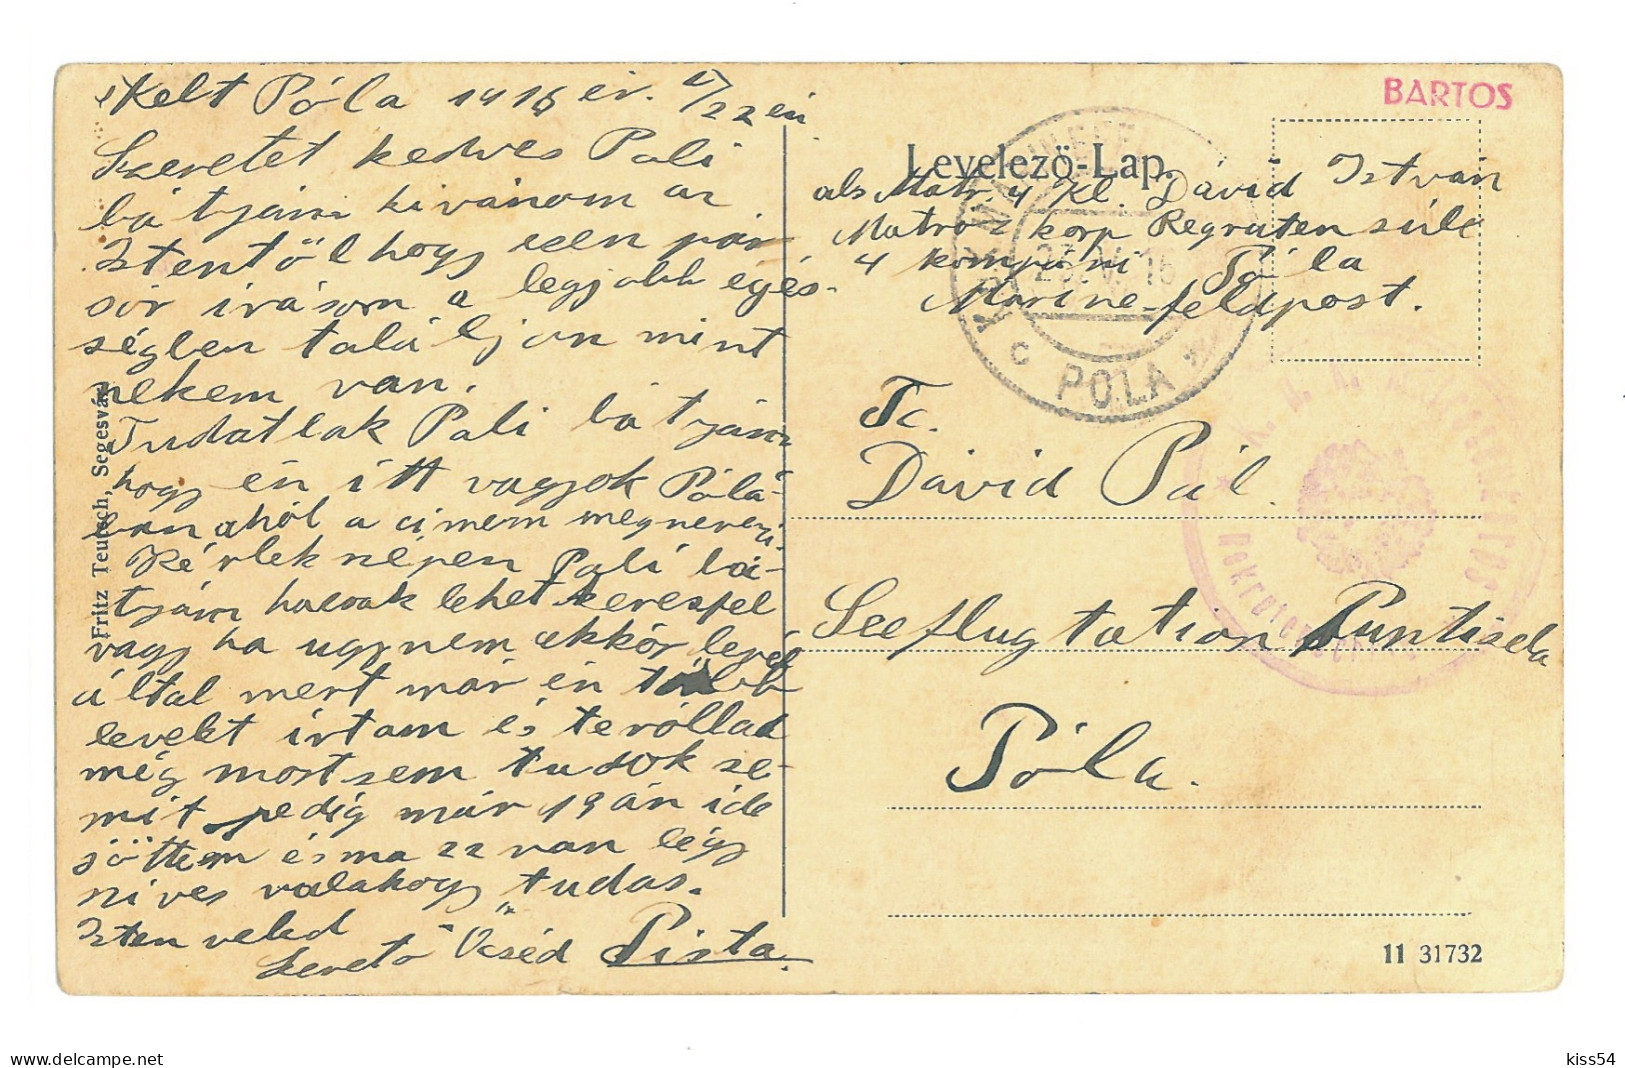 Kelt Póla 1916 év. V/22 én
Szeretet kedves Pali
bátyám kivánom az
Istentöl hogy ezen pár
sor irásom a legjobb egés-
ségben talá ljon mint
nekem van.
Tudatlak Pali bátyám
hogy én itt vagyok Póla-
ban ahól a cimem megnevezi.
Kérlek népen Pali bá-
tyám haca lehet keress fel
vagy ha ugy nem akkór levél
által mert már én több
levelet írtam és teróllad
még most sem tudok se-
mit pedig már 19 én ide
jöttem és ma 22 van légy
sives valahogy tudas.
Isten veled
szeretö Öcséd Pista.
Fritz Teutsch, Segesvár
BARTOS
Levelezö-Lap.
als Matr. 4 Kl. Dávid István
Matroz korp Regruten súle
4 kompáni Póla
Marine-feldpost.
POLA
Tc.
Dávid Pál.
Seeflugstation Puntisela
Póla.
11 31732
delcampe.net
kiss54